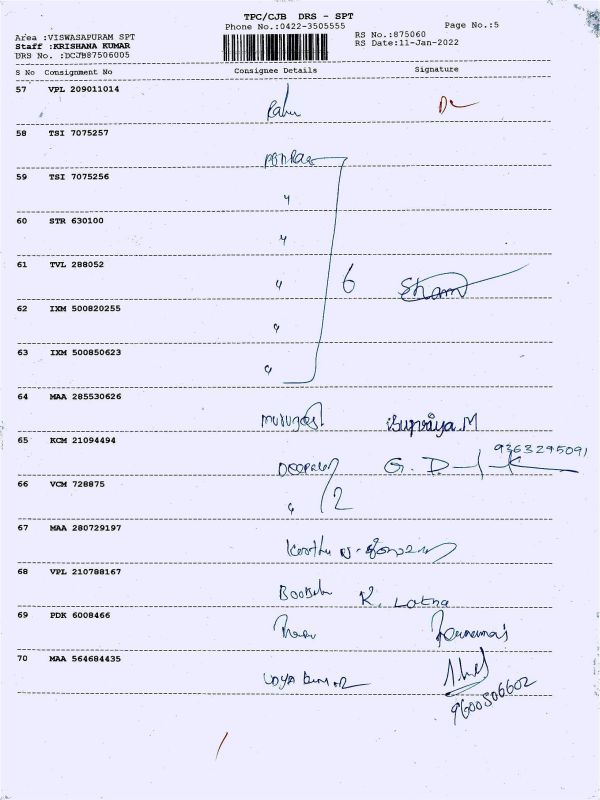 TPC/CJB DRS - SPT
Area :VISWASAPURAM SPT Phone No.:0422-3505555 Page No.:5
Staff :KRISHANA KUMAR RS No.:875060
DRS No. :DCJB87506005 RS Date:11-Jan-2022
S No Consignment No Consignee Details Signature
57 VPL 209011014
58 TSI 7075257
59 TSI 7075256
60 STR 630100
61 TVL 288052
6 Sham
62 IXM 500820255
63 IXM 500850623
64 MAA 285530626
Supriya.M
65 KCM 21094494
9363295091
G. D
66 VCM 728875
2
67 MAA 280729197
68 VPL 210788167
K. Latha
69 PDK 6008466
70 MAA 564684435
9600506602